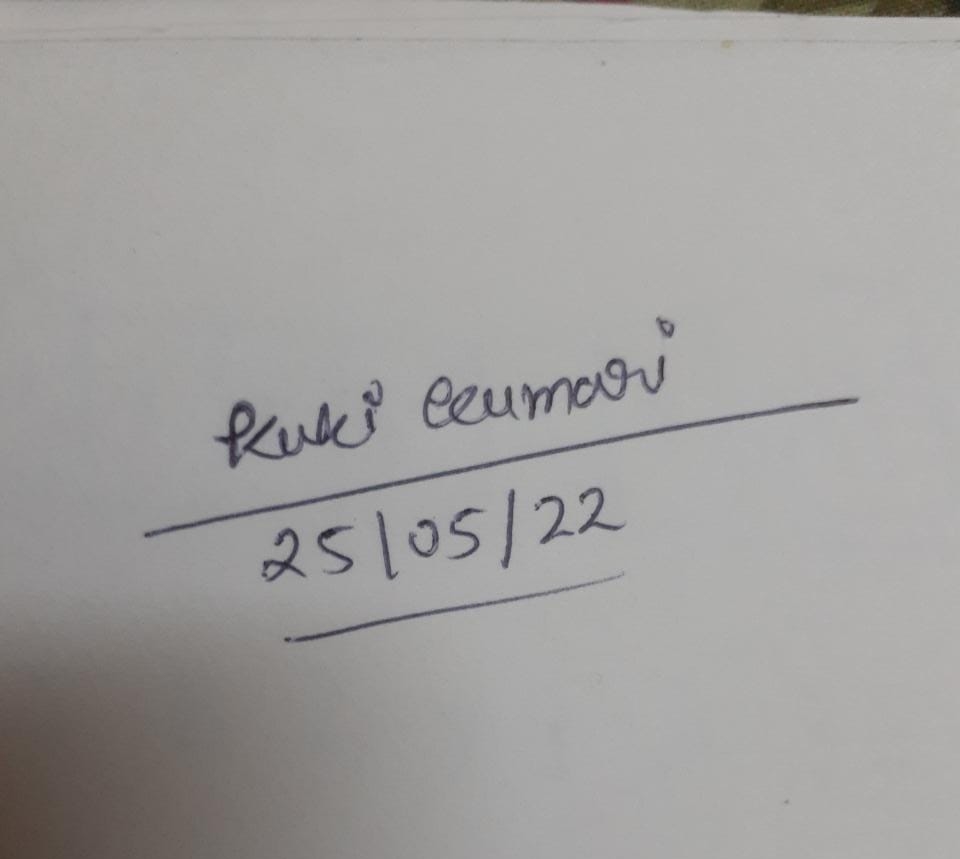 Kuki Kumari
25/05/22